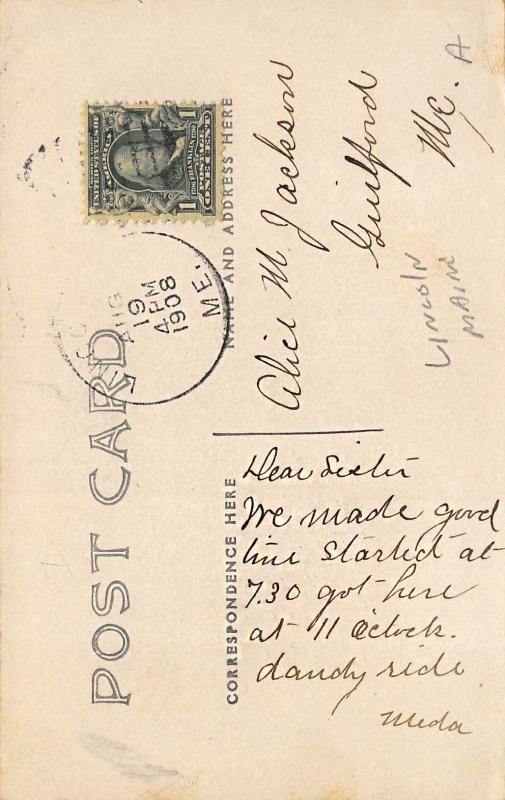 POST CARD
CORRESPONDENCE HERE
NAME AND ADDRESS HERE
UNITED STATES OF
POSTAGE
ONE CENT
1
1
AUG
19
4 PM
1908
ME.
Dear Sister
We made good
time started at
7.30 got here
at 11 o'clock.
dandy ride
Meda
Alice M. Jackson
Guilford
Me.
A
LINCOLN
MAINE